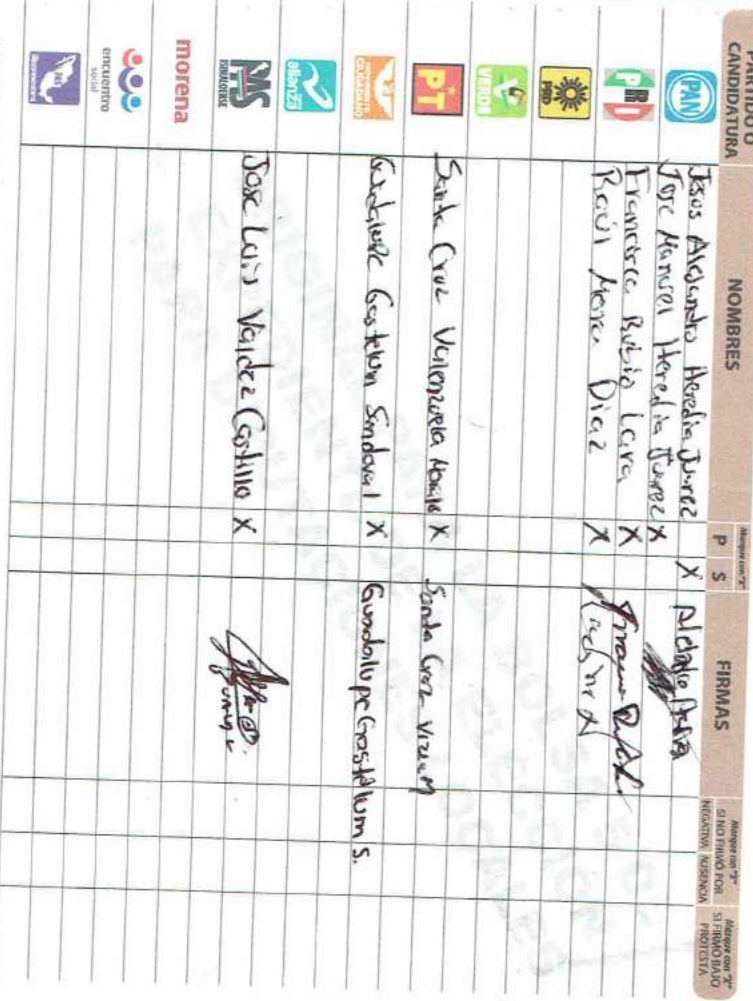 PARTIDO O CANDIDATURA
NOMBRES
Marque con "X"
P S
FIRMAS
Marque con "X"
SI NO FIRMÓ POR
NEGATIVA AUSENCIA
Marque con "X"
SI FIRMÓ BAJO PROTESTA
PAN
Jesus Alejandro Heredia Juarez X
Jose Manuel Heredia Juarez X
PRI
Francisca Rubio Lara X
Raúl Mena Diaz X
PRD
VERDE
PT
Santa Cruz Valenzuela X Santa Cruz
MOVIMIENTO CIUDADANO
Guadalupe Gastelum Sandoval X Guadalupe Gastelum S.
alianza
PAS
SINALOENSE
Jose Luis Valdez Castillo X
morena
encuentro social